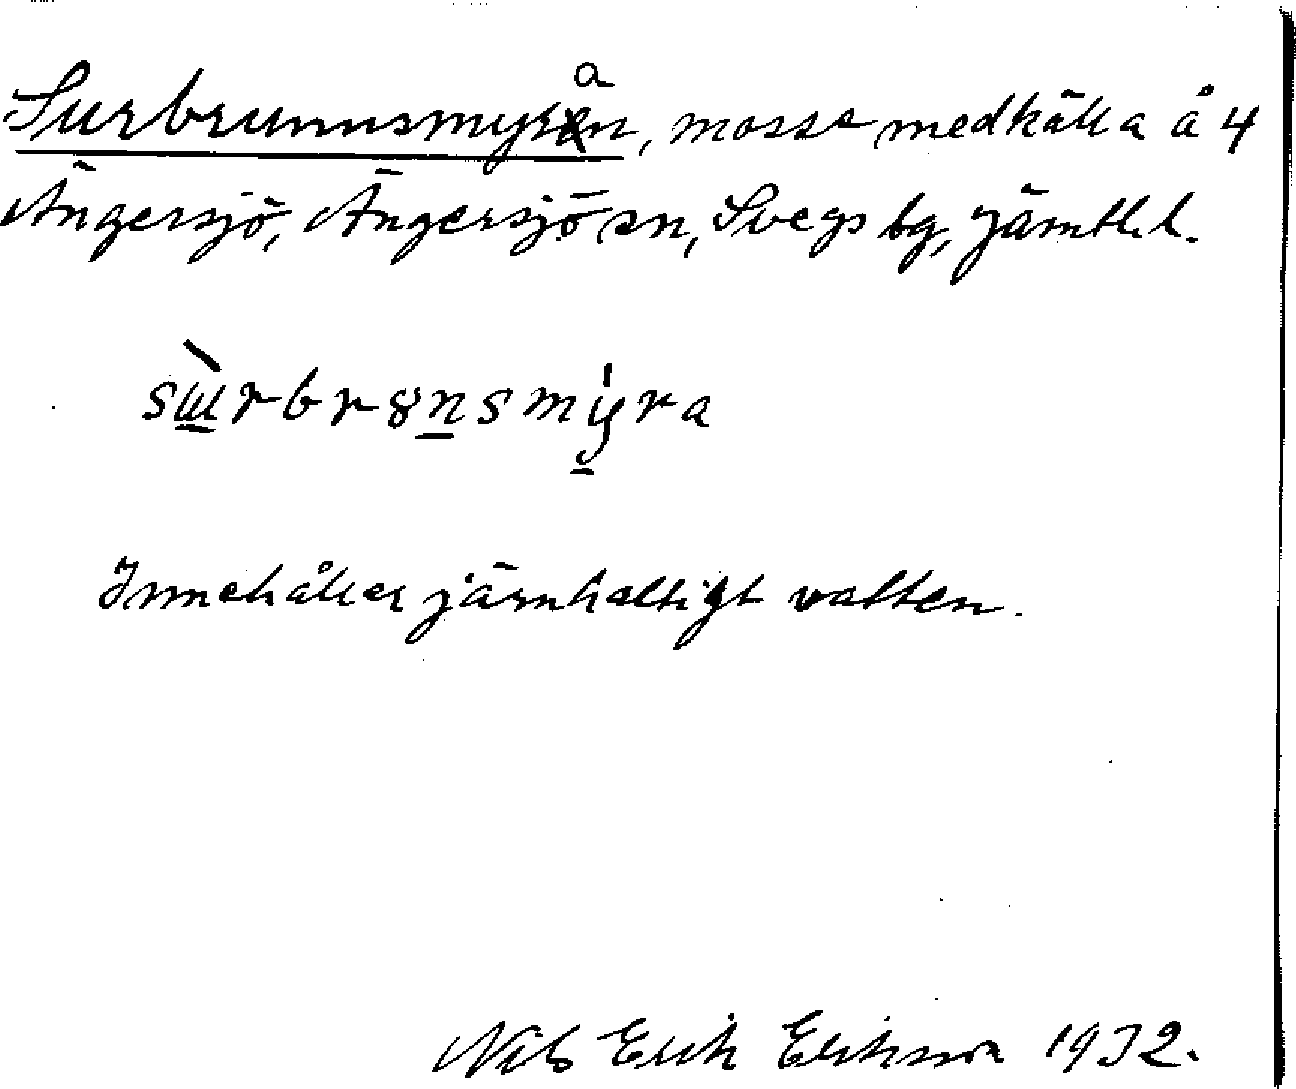 Surbrunnsmyran, mosse med källa å 4
Ängersjö, Ängersjö sn, Svegs tg, Jämtl. l.
sɯrbr8nsmyra
Innehåller järnhaltigt vatten.
Nils Erik Eriksson 1932.